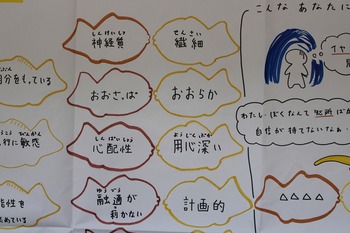 こんな あなたに
しんけいしつ
神経質
せんさい
繊細
自分をもっている
おおざっぱ
おおらか
わたし・ぼくなんて 短所ば
自信が持てないなぁ
びんかん
行に敏感
しんぱいしょう
心配性
ようじんぶか
用心深い
ゆうづう
融通が
利かない
けいかくてき
計画的
△△△△